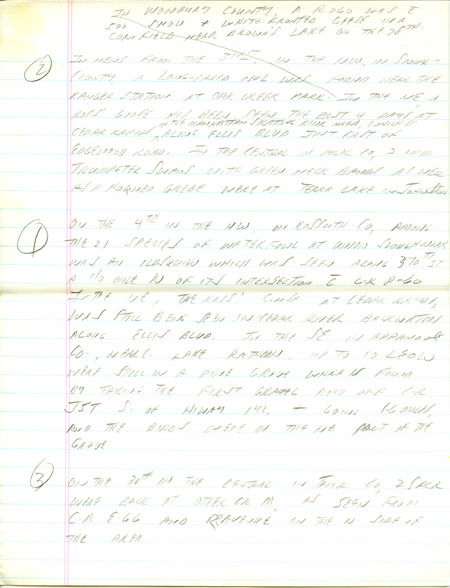 IN WOODBURY COUNTY, A ROGO WAS c̄
500 SNOW + WHITE FRONTED GEESE IN A
CORNFIELD NEAR BROWN'S LAKE ON THE 28TH.
② IN NEWS FROM THE 31ST, IN THE NW, IN
COUNTY A LONG-EARED OWL WAS FOUND NEAR THE
RANGER STATION AT OAK GROVE PARK. IN THE NE, A
ROSS' GOOSE HAS BEEN SEEN THE PAST 4 DAYS AT
CEDAR RAPIDS, ALONG ELLIS BLVD JUST EAST OF
EDGEWOOD ROAD. IN THE CENTRAL IN POLK CO, 2 IMM.
TRUMPETER SWANS WITH GREEN NECK BANDS AS WELL
AS A HORNED GREBE WERE AT TERRA LAKE IN JOHNSTON
① ON THE 4TH IN THE NW, IN KOSSUTH CO, AMONG
THE 21 SPECIES OF WATERFOWL AT UNION SLOUGH NWR
WAS AN WHICH WAS SEEN ALONG 370TH ST
A 1/2 MILE N OF ITS INTERSECTION c̄ CR A-60
IN THE NE, THE ROSS' GOOSE AT CEDAR RAPIDS,
WAS STILL BEING SEEN IN CEDAR RIVER BACKWATERS
ALONG ELLIS BLVD. IN THE SE IN APPANOOSE
CO, NEAR LAKE RATHBUN, UP TO 10 LEOW
WERE STILL IN A PINE GROVE WHICH IS FOUND
BY TAKING THE FIRST GRAVEL ROAD OFF CR
J5T S. OF HIWAY 142, + GOING MILES,
AND THE BIRDS WERE IN THE NE PART OF THE
GROVE
③ ON THE 30TH IN THE CENTRAL IN TAMA CO, 2 SACR
WERE BACK AT OTTER CR M, AS SEEN FROM
C.R. E66 AND R AVENUE ON THE N. SIDE OF
THE AREA